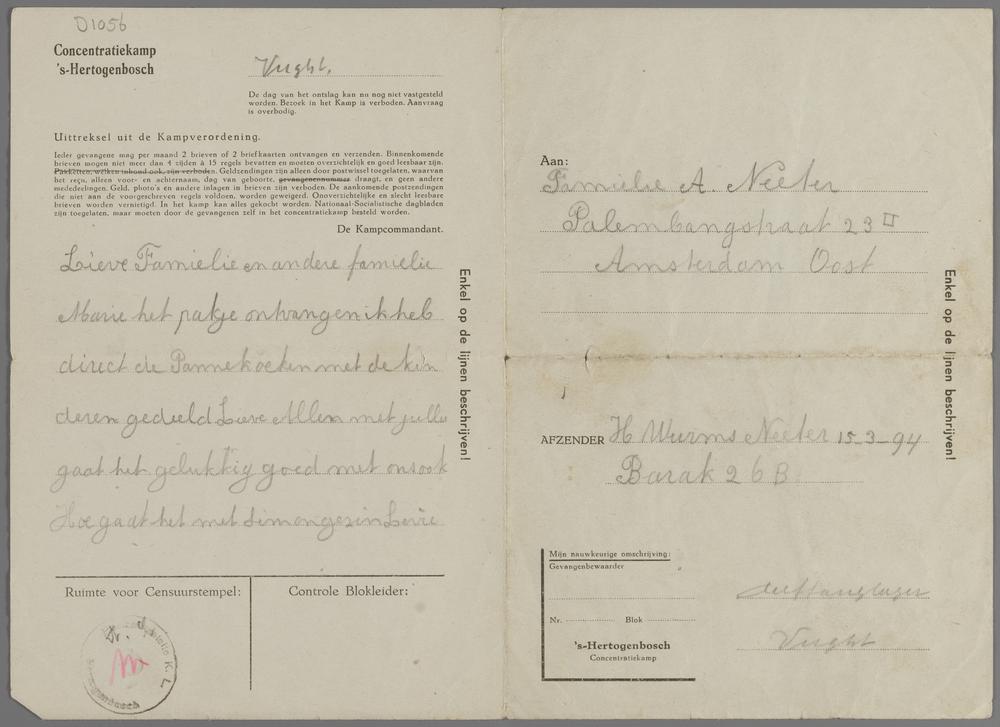 D1056
Concentratiekamp
's-Hertogenbosch
Vught.
De dag van het ontslag kan nu nog niet vastgesteld
worden. Bezoek in het Kamp is verboden. Aanvraag
is overbodig.
Uittreksel uit de Kampverordening.
Ieder gevangene mag per maand 2 brieven of 2 briefkaarten ontvangen en verzenden. Binnenkomende
brieven mogen niet meer dan 4 zijden à 15 regels bevatten en moeten overzichtelijk en goed leesbaar zijn.
Pakketten, welken inhoud ook, zijn verboden. Geldzendingen zijn alleen door postwissel toegelaten, waarvan
het reçu, alleen voor- en achternaam, dag van geboorte, gevangenennummer draagt, en geen andere
mededeelingen. Geld, photo's en andere inlagen in brieven zijn verboden. De aankomende postzendingen
die niet aan de voorgeschreven regels voldoen, worden geweigerd. Onoverzichtelijke en slecht leesbare
brieven worden vernietigd. In het kamp kan alles gekocht worden. Nationaal-Socialistische dagbladen
zijn toegelaten, maar moeten door de gevangenen zelf in het concentratiekamp besteld worden.
De Kampcommandant.
Lieve Famielie en andere famielie
Marie het pakje ontvangen ik heb
direct de Pannekoeken met de kin
deren gedeeld Lieve Allen met jullie
gaat het gelukkig goed met ons ook
Hoe gaat het met Simon gezin Levie
Enkel op de lijnen beschrijven!
Ruimte voor Censuurstempel:
Controle Blokleider:
K. L.
Aan:
Famielie A. Neeter
Palembangstraat 23 II
Amsterdam Oost
Enkel op de lijnen beschrijven!
AFZENDER H Wurms Neeter 15-3-94
Barak 26 B
Mijn nauwkeurige omschrijving:
Gevangenbewaarder
Nr. Blok
's-Hertogenbosch
Concentratiekamp
Auffanglager
Vught